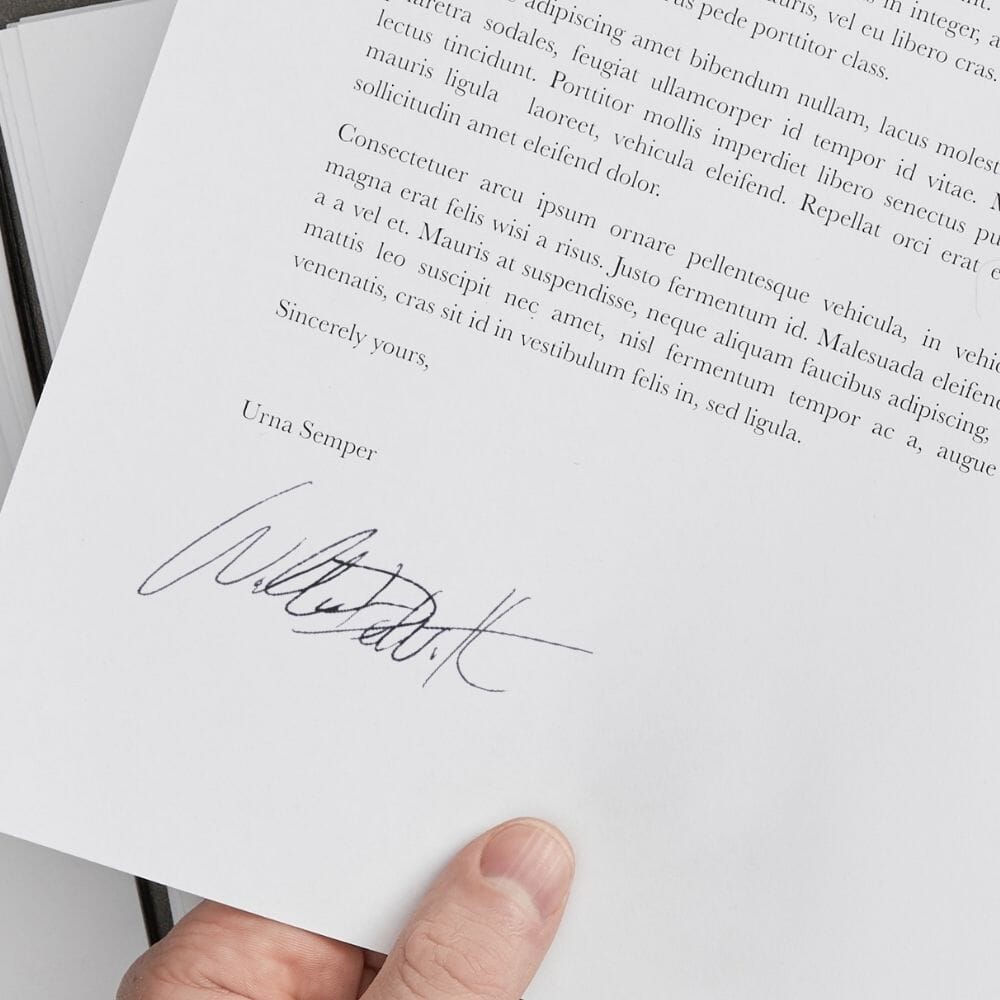 in integer, a
vel eu libero cras.
pede porttitor class.
adipiscing amet bibendum nullam, lacus molest
pharetra sodales, feugiat ullamcorper id tempor id vitae. M
lectus tincidunt. Porttitor mollis imperdiet libero senectus pu
mauris ligula laoreet, vehicula eleifend. Repellat orci erat e
sollicitudin amet eleifend dolor.
Consectetuer arcu ipsum ornare pellentesque vehicula, in vehic
magna erat felis wisi a risus. Justo fermentum id. Malesuada eleifend
a a vel et. Mauris at suspendisse, neque aliquam faucibus adipiscing,
mattis leo suscipit nec amet, nisl fermentum tempor ac a, augue
venenatis, cras sit id in vestibulum felis in, sed ligula.
Sincerely yours,
Urna Semper